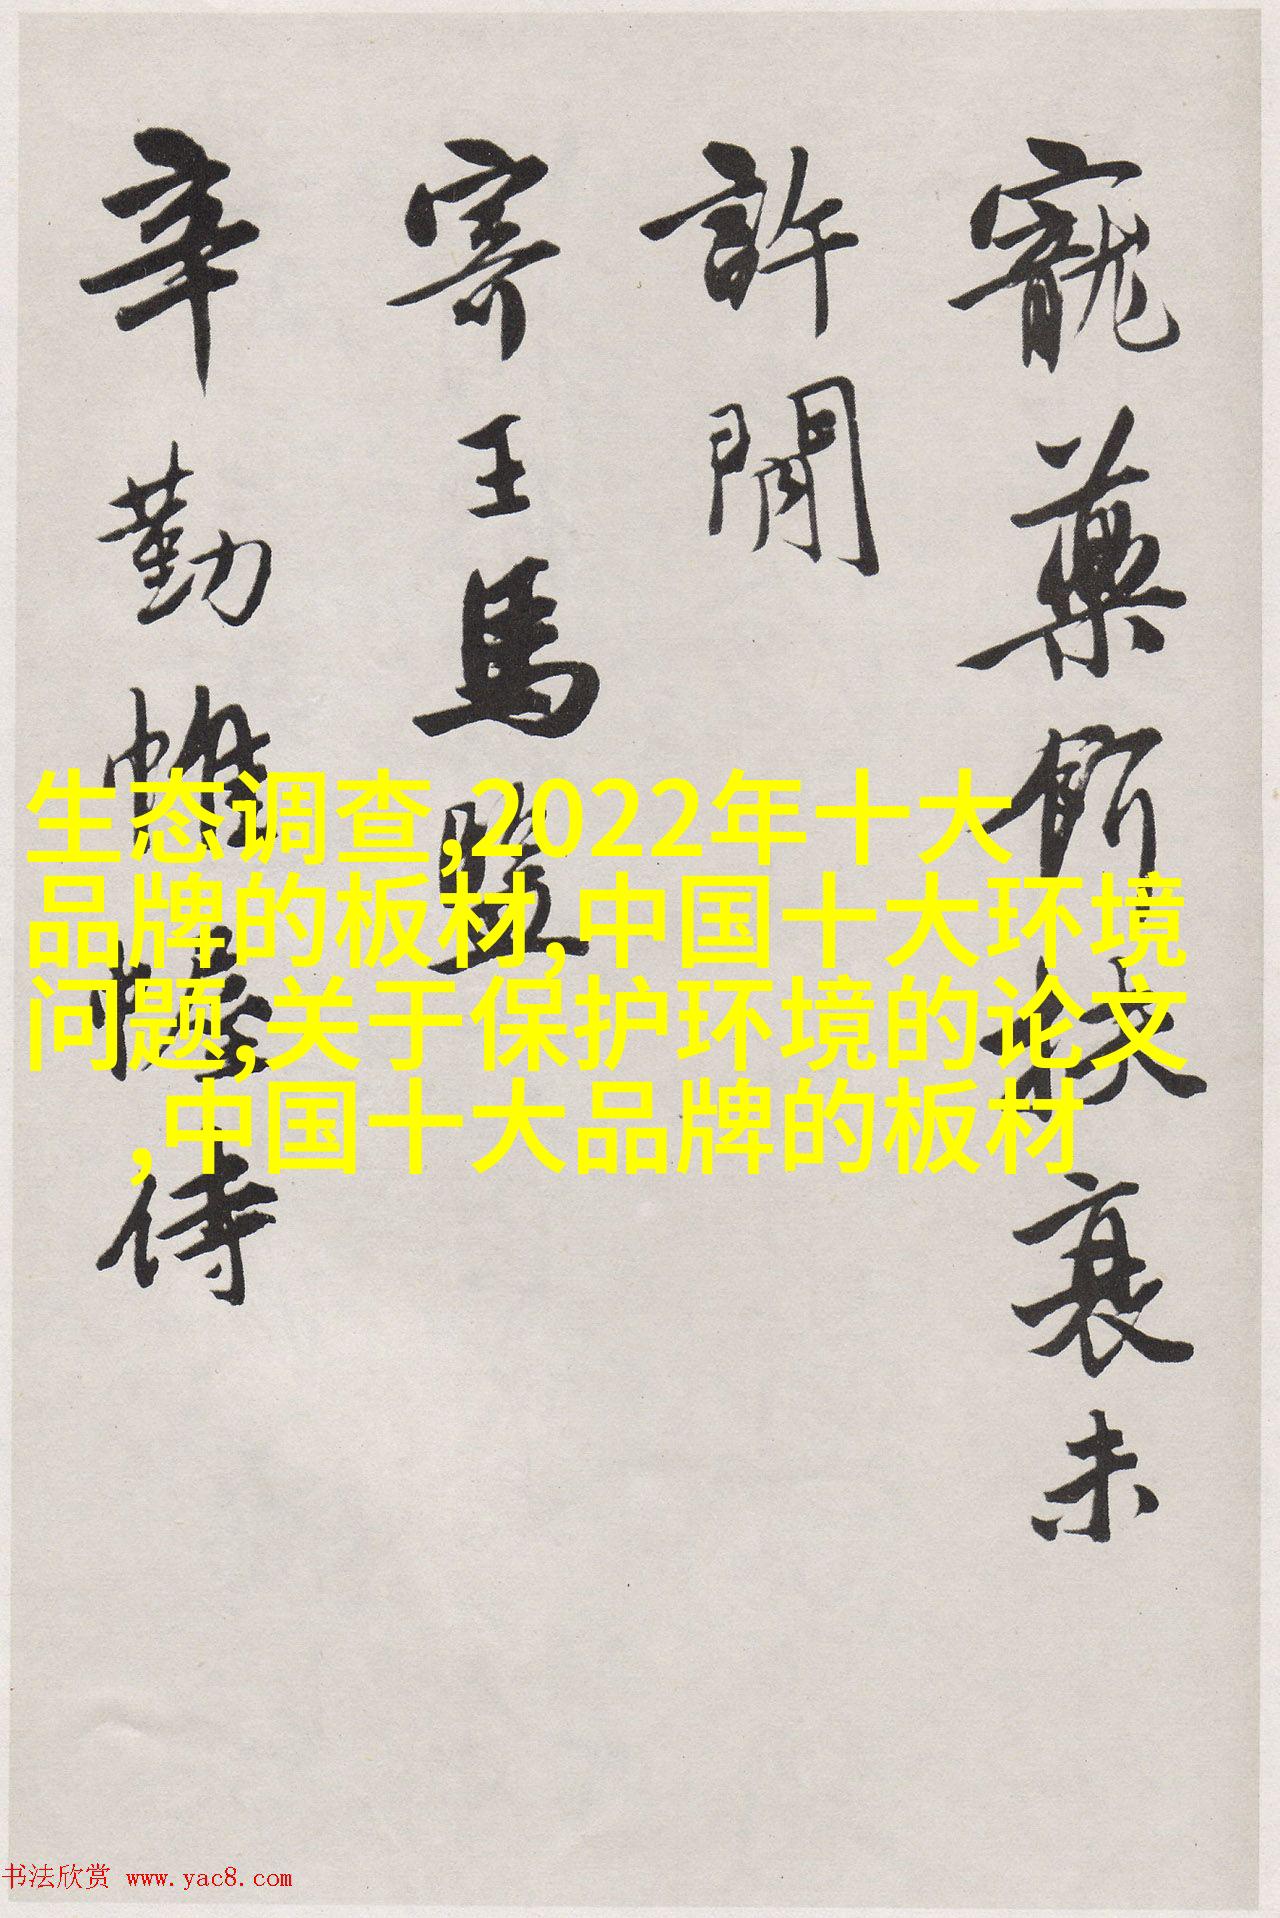 寵藥餌扶衰未
許閒
寄王馬監
辛勤帷幄侍
生态调查,2022年十大
品牌的板材,中国十大环境
问题,关于保护环境的论文
,中国十大品牌的板材
书法欣赏 www.yac8.com